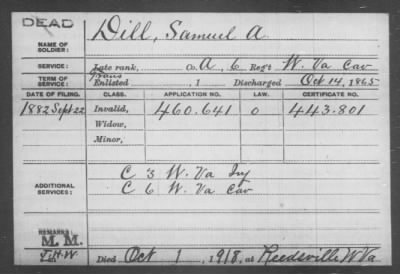 DEAD
NAME OF SOLDIER: Dill, Samuel A.
SERVICE: Late rank, Co. A, 6 Reg't W. Va Cav
TERM OF SERVICE: Enlisted , 1 Discharged Oct 14, 1865
DATE OF FILING. CLASS. APPLICATION NO. LAW. CERTIFICATE NO.
1882 Sept 22 Invalid, 460.641 O 443.801
Widow,
Minor,
ADDITIONAL SERVICES: C 3 W. Va Inf
C 6 W. Va Cav
REMARKS:
M. M.
Died Oct 1, 1918, at Reedsville W Va